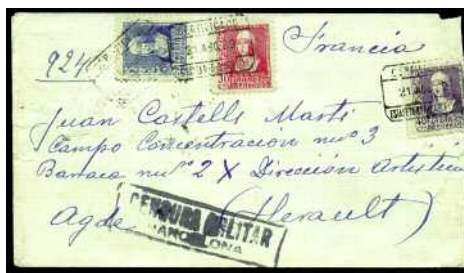 Francia
924
Juan Castells Marti
Campo Concentración nuº 3
Barraca nuº 2 X Dirección Artistica
Agde (Herault)
CENSURA MILITAR
BARCELONA